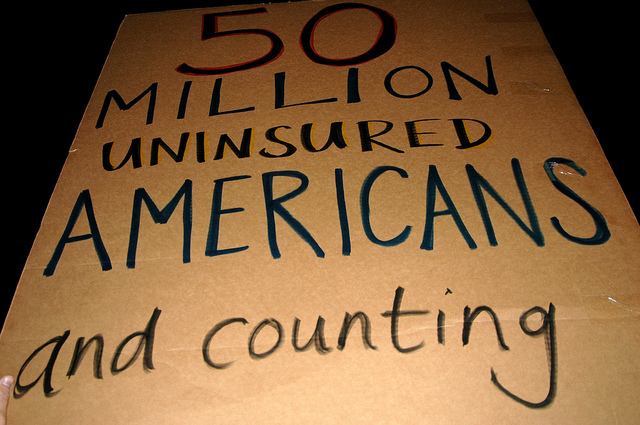 50
MILLION
UNINSURED
AMERICANS
and counting